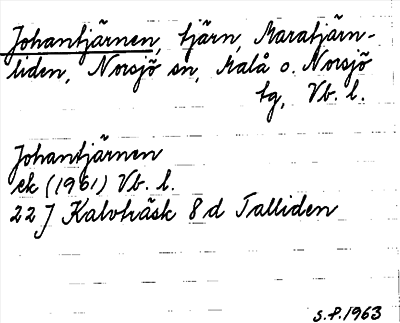 Johantjärnen, tjärn, Maratjärn-
liden, Norsjö sn, Malå o. Norsjö
tg, Vb. l.
Johantjärnen
ek (1961) Vb. l.
22 J Kalvträsk 8 d Talliden
S.P.1963